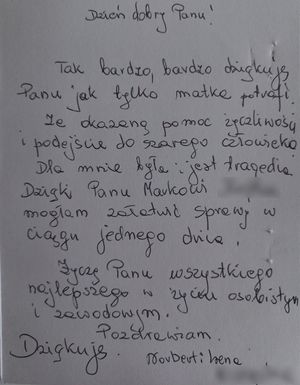 Dzień dobry Panu!
Tak bardzo, bardzo dziękuję
Panu jak tylko matka potrafi.
Ze okazaną pomoc życzliwość
i podejście do szarego człowieka
Dla mnie była i jest tragedia.
Dzięki Panu Markowi
mogłam załatwić sprawy w
ciągu jednego dnia.
Życzę Panu wszystkiego
najlepszego w życiu osobistym
i zawodowym.
Pozdrawiam.
Dziękuję. Norbert i Irena